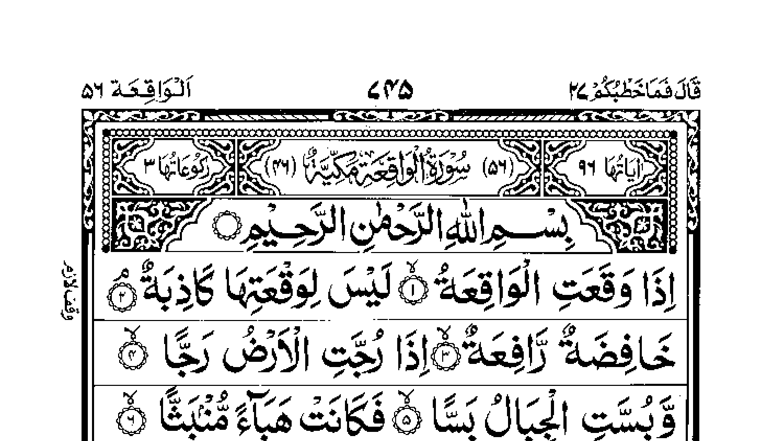 قَالَ فَمَا خَطْبُكُمْ ٢٧ ٧٤٥ اَلْوَاقِعَة ٥٦
اٰيَاتُهَا ٩٦ (٥٦) سُوْرَةُ الْوَاقِعَةِ مَكِّيَّةٌ (٤٦) رُكُوْعَاتُهَا ٣
بِسْمِ اللّٰهِ الرَّحْمٰنِ الرَّحِيْمِ
اِذَا وَقَعَتِ الْوَاقِعَةُ ۙ‏﴿١﴾ لَيْسَ لِوَقْعَتِهَا كَاذِبَةٌ ۘ‏﴿٢﴾ وقف لازم
خَافِضَةٌ رَّافِعَةٌ ۙ‏﴿٣﴾ اِذَا رُجَّتِ الْاَرْضُ رَجًّا ۙ‏﴿٤﴾
وَّبُسَّتِ الْجِبَالُ بَسًّا ۙ‏﴿٥﴾ فَكَانَتْ هَبَآءً مُّنْۢبَثًّا ۙ‏﴿٦﴾